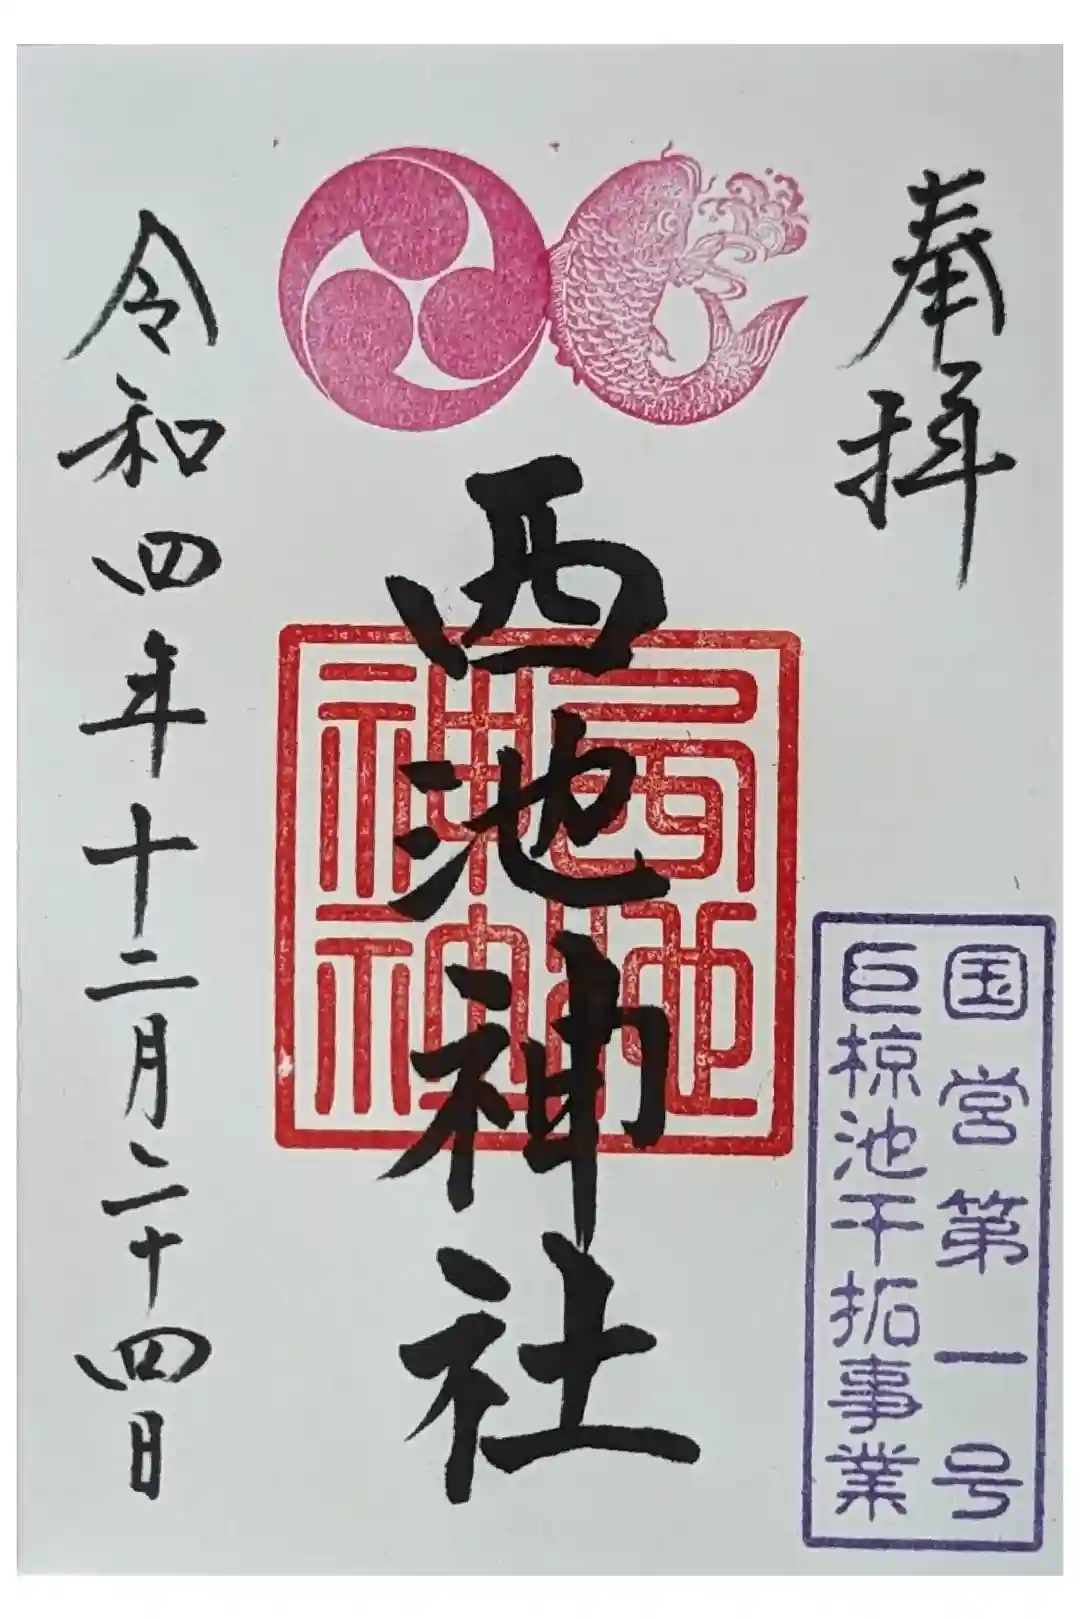 奉拝
国営第一号
巨椋池干拓事業
西池神社
西池
神社
令和四年十二月二十四日